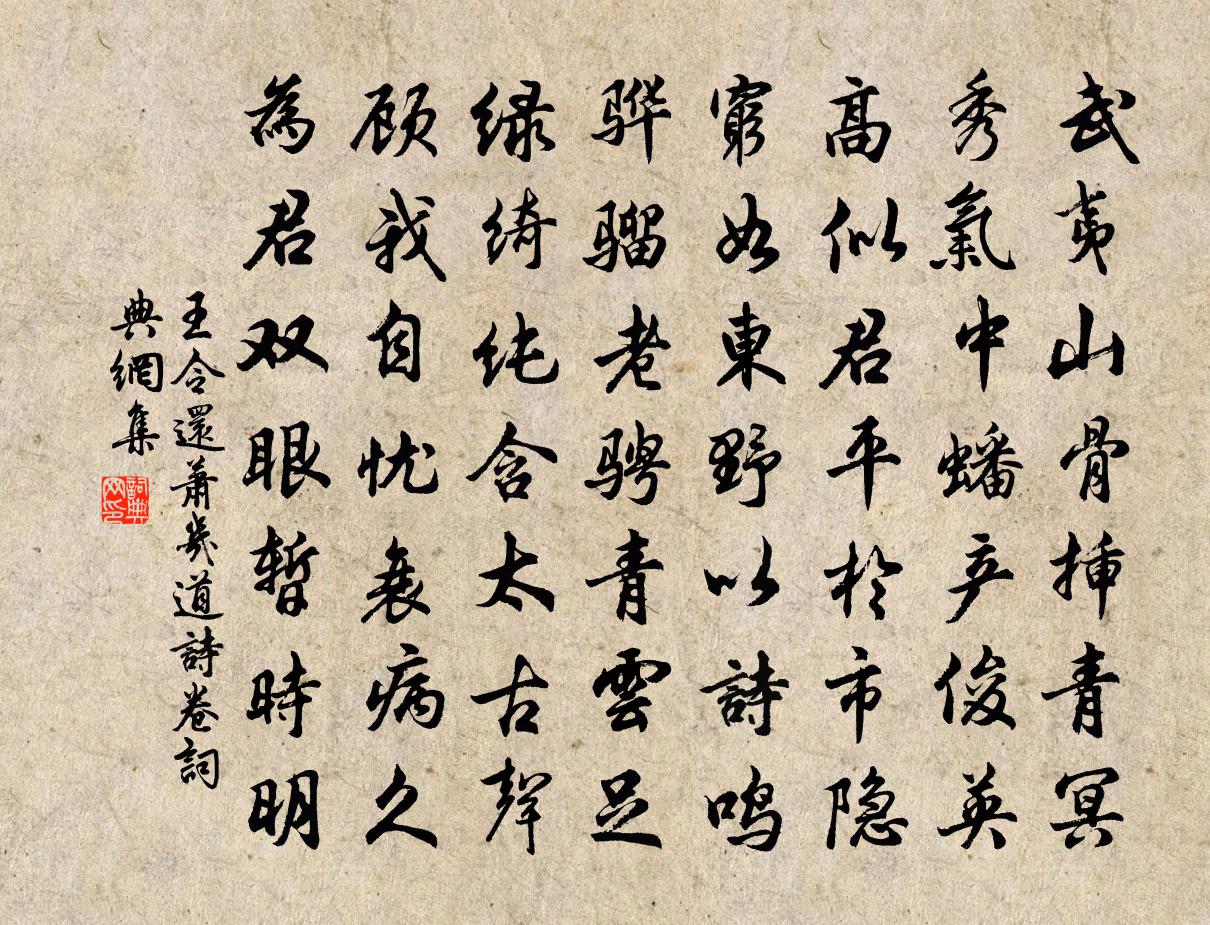 武夷山骨插青冥
秀氣中蟠产俊英
高似君平於市隐
窮如東野以詩鸣
骅骝老骋青雲足
绿绮纯含太古聲
顾我自忧衰病久
為君双眼暫時明
王令還蕭幾道詩卷詞
典網集
詞典
网印